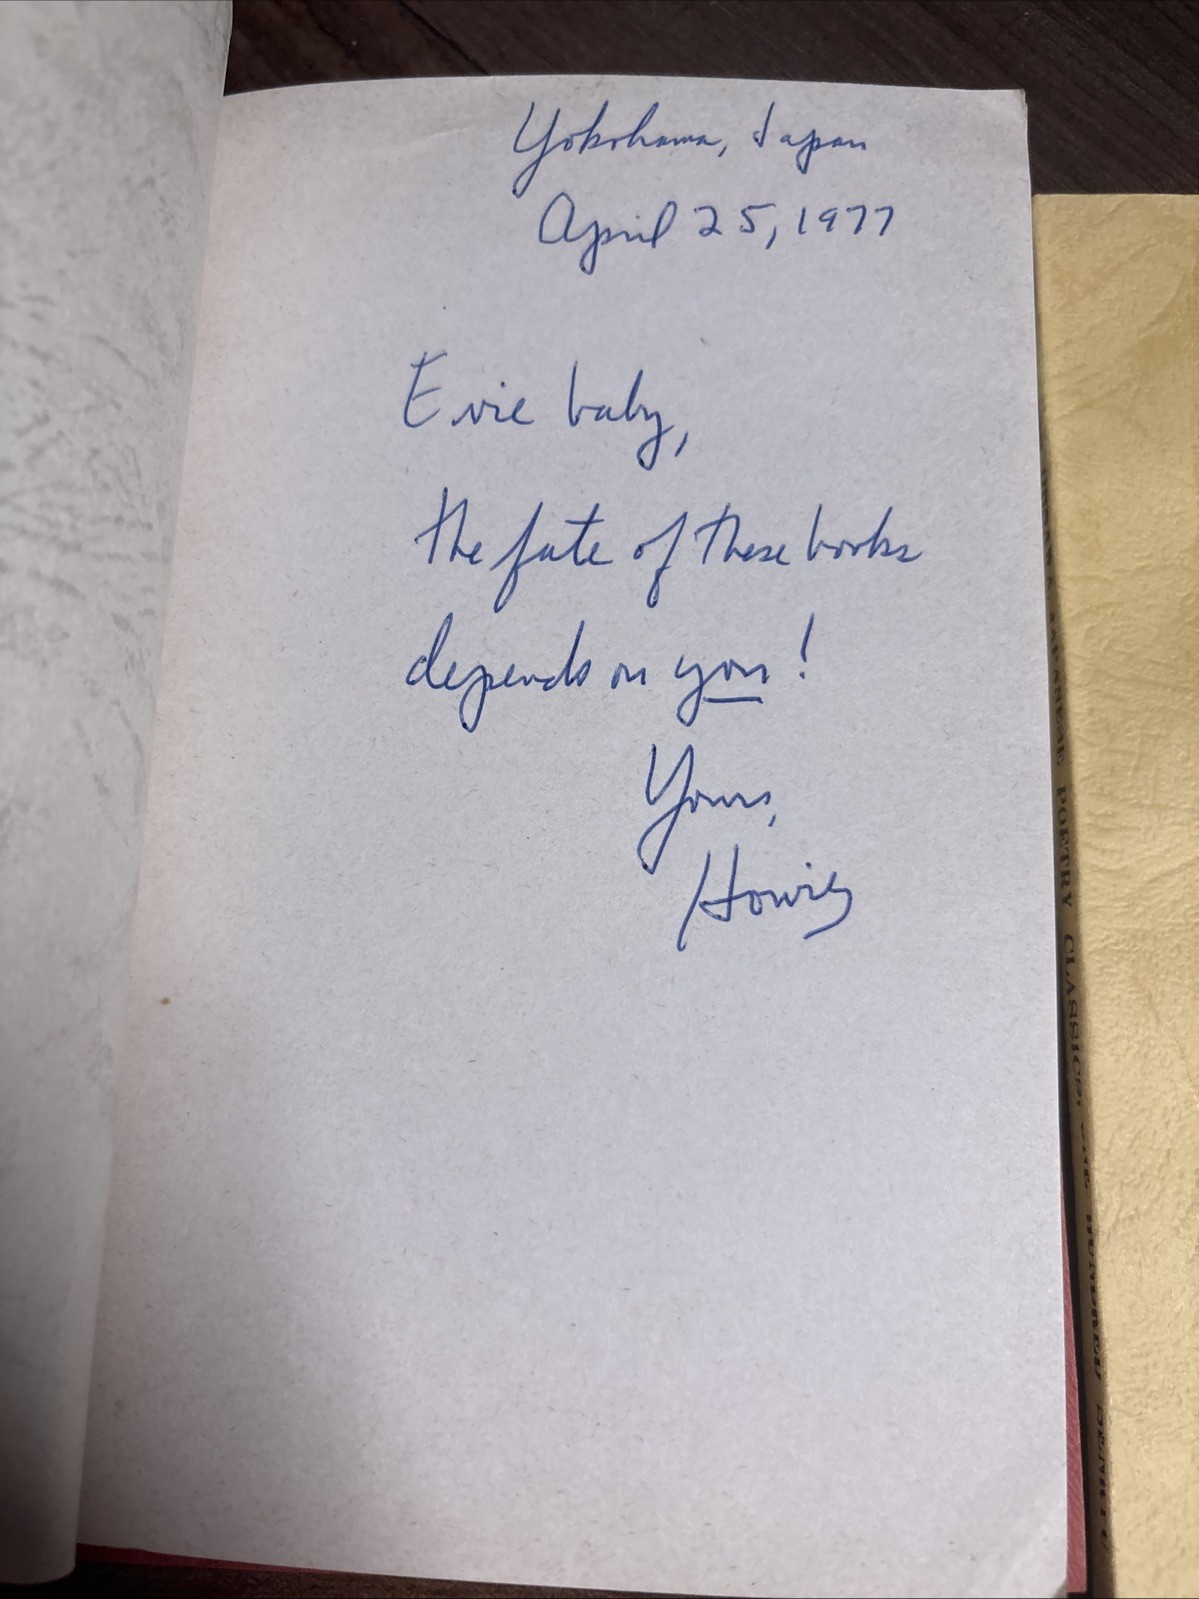 Yokohama, Japan
April 25, 1977
Evie baby,
the fate of these books
depends on you!
Yours,
Howie
POETRY CLASSICS: ONE HUNDRED